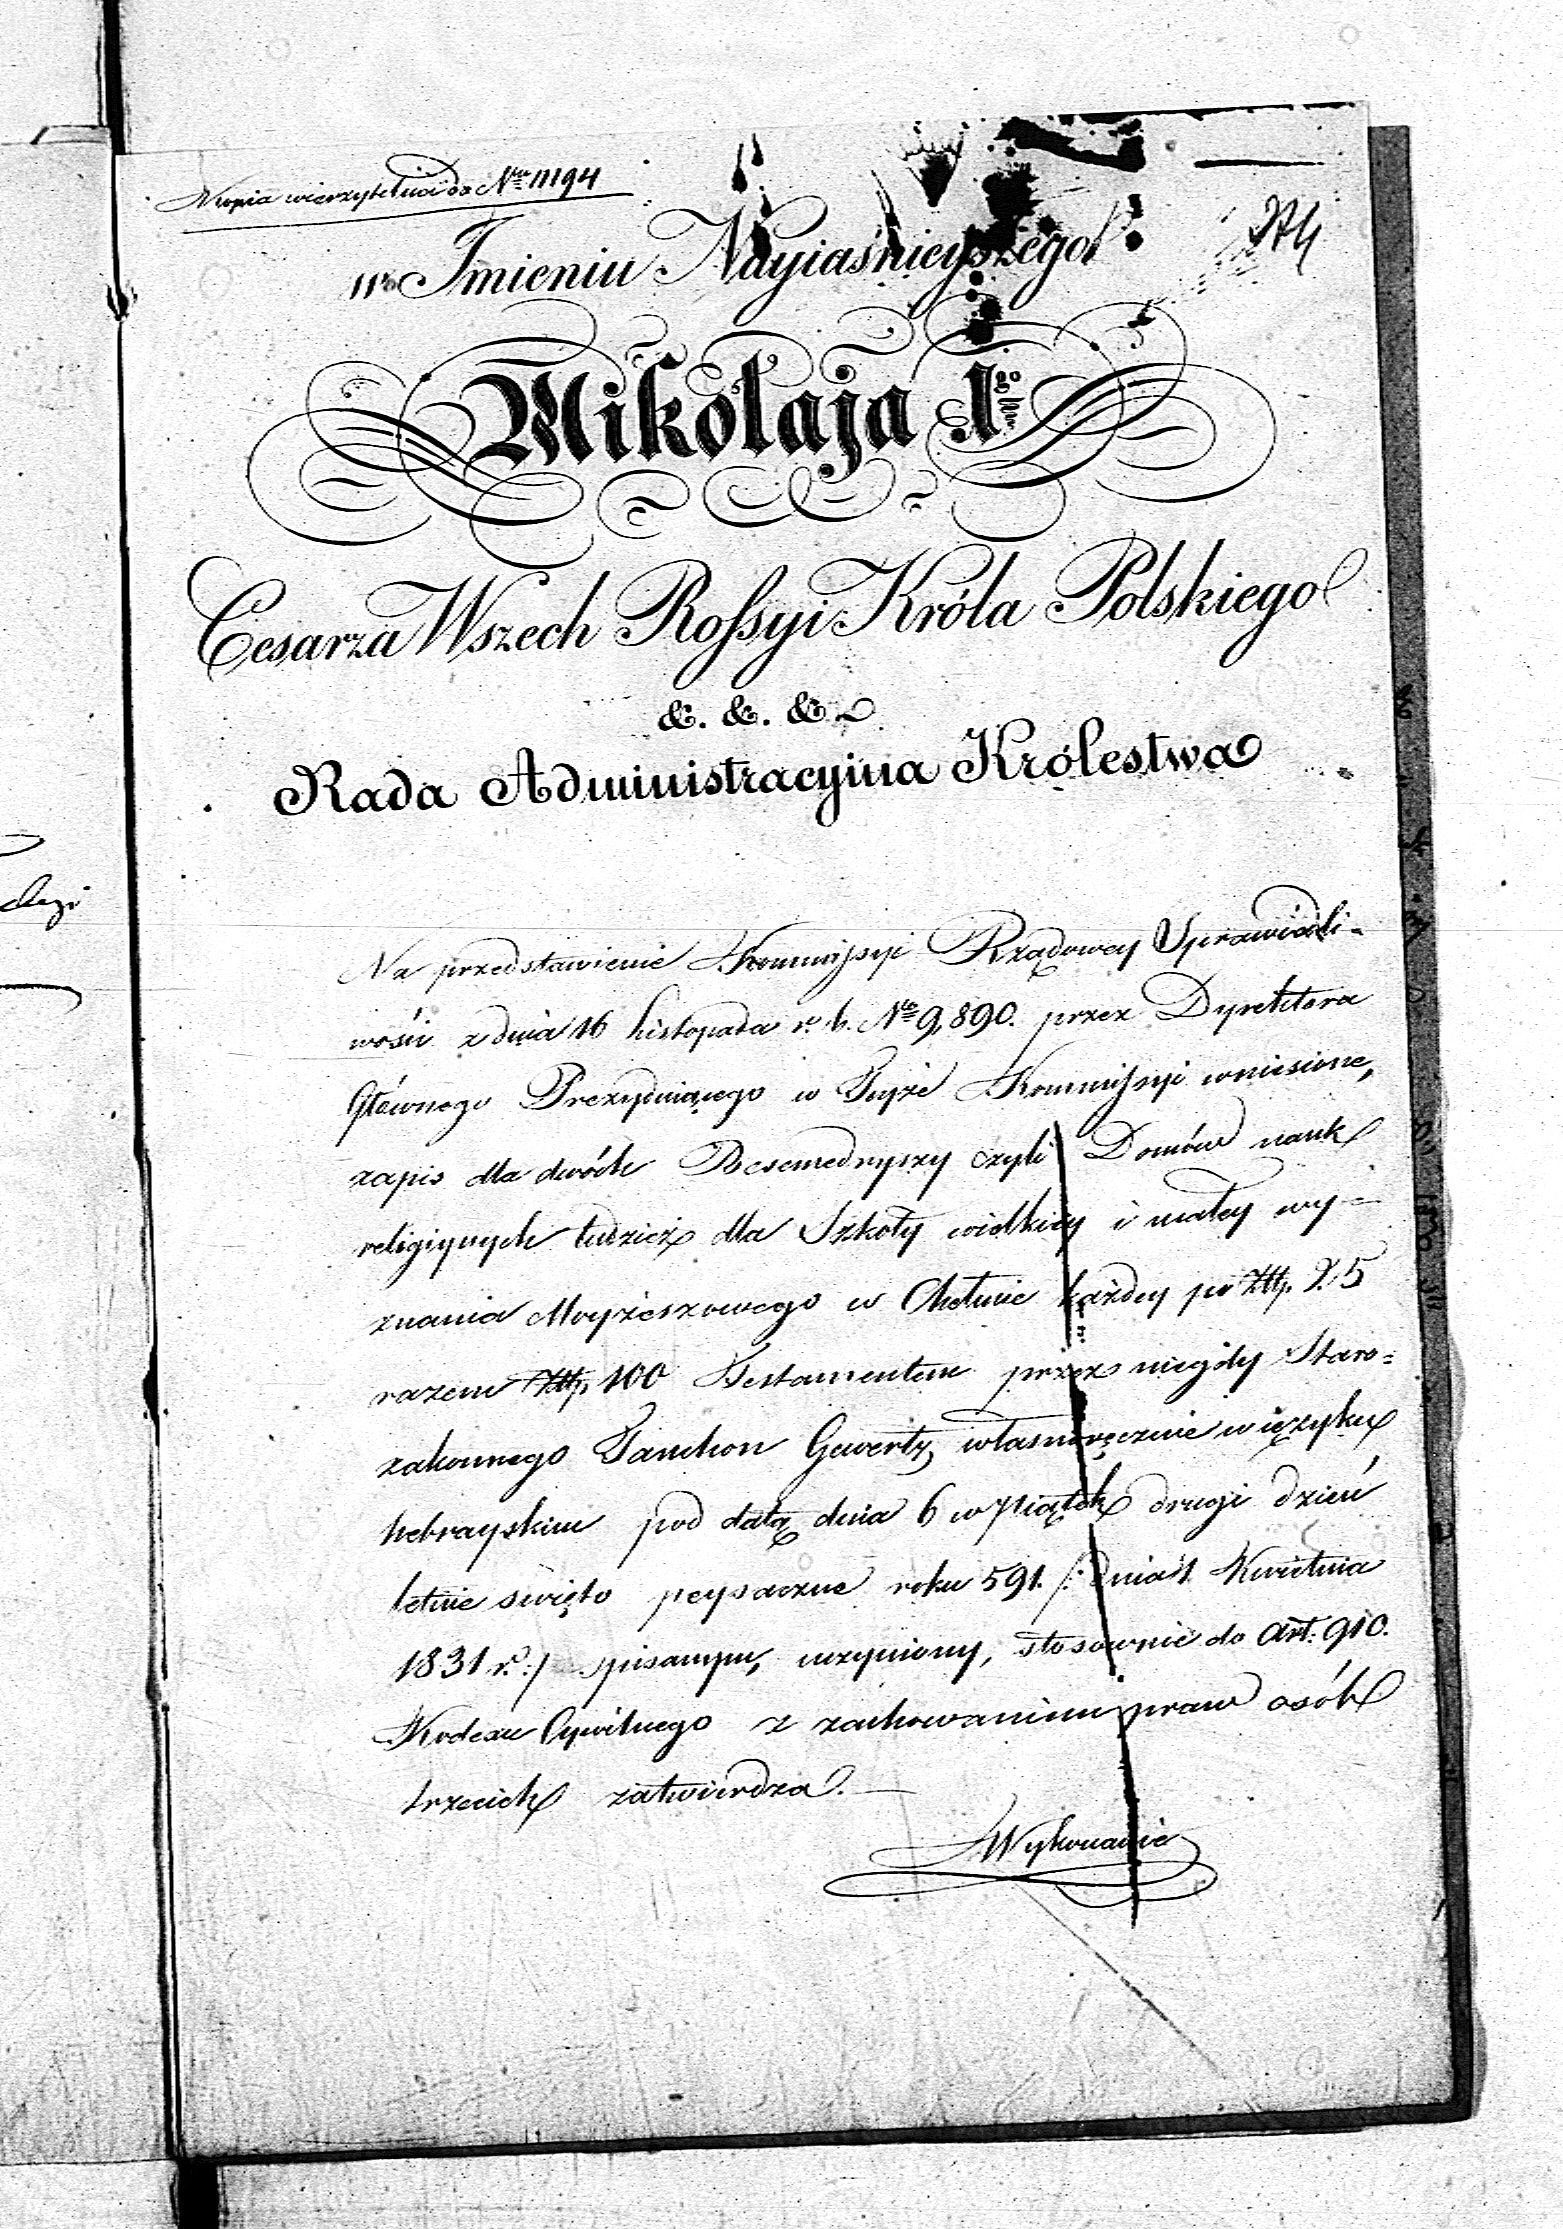 Kopia wierzytelna do Nru 11194
274
w Imieniu Nayiaśnieyszego
Mikołaja Igo
Cesarza Wszech Rossyi Króla Polskiego
&. &. &.
Rada Administracyina Królestwa
Na przedstawienie Kommissyi Rządowey Sprawiedli-
wości z dnia 16 Listopada r. b. No 9,890. przez Dyrektora
Głównego Prezyduiącego w Teyże Kommissyi wniesione,
zapis dla dwóch Besemedryszy czyli Domów nauk
religiynych tudzież dla Szkoły wielkiey i małey wy-
znania Moyżeszowego w Chełmie każdey po Złtp. 25
razem Złtp. 100 Testamentem przez niegdy Staro=
zakonnego Tanchon Gewertz, własnoręcznie w ięzyku
hebrayskim pod datą dnia 6 w Piątek drugi dzień
letnie święto peysaczne roku 591. /: dnia 1 Kwietnia
1831 r. :/ spisanym, uczyniony, stosownie do Art: 910.
Kodexu Cywilnego z zachowaniem praw osób
trzecich zatwierdza.
Wykonanie